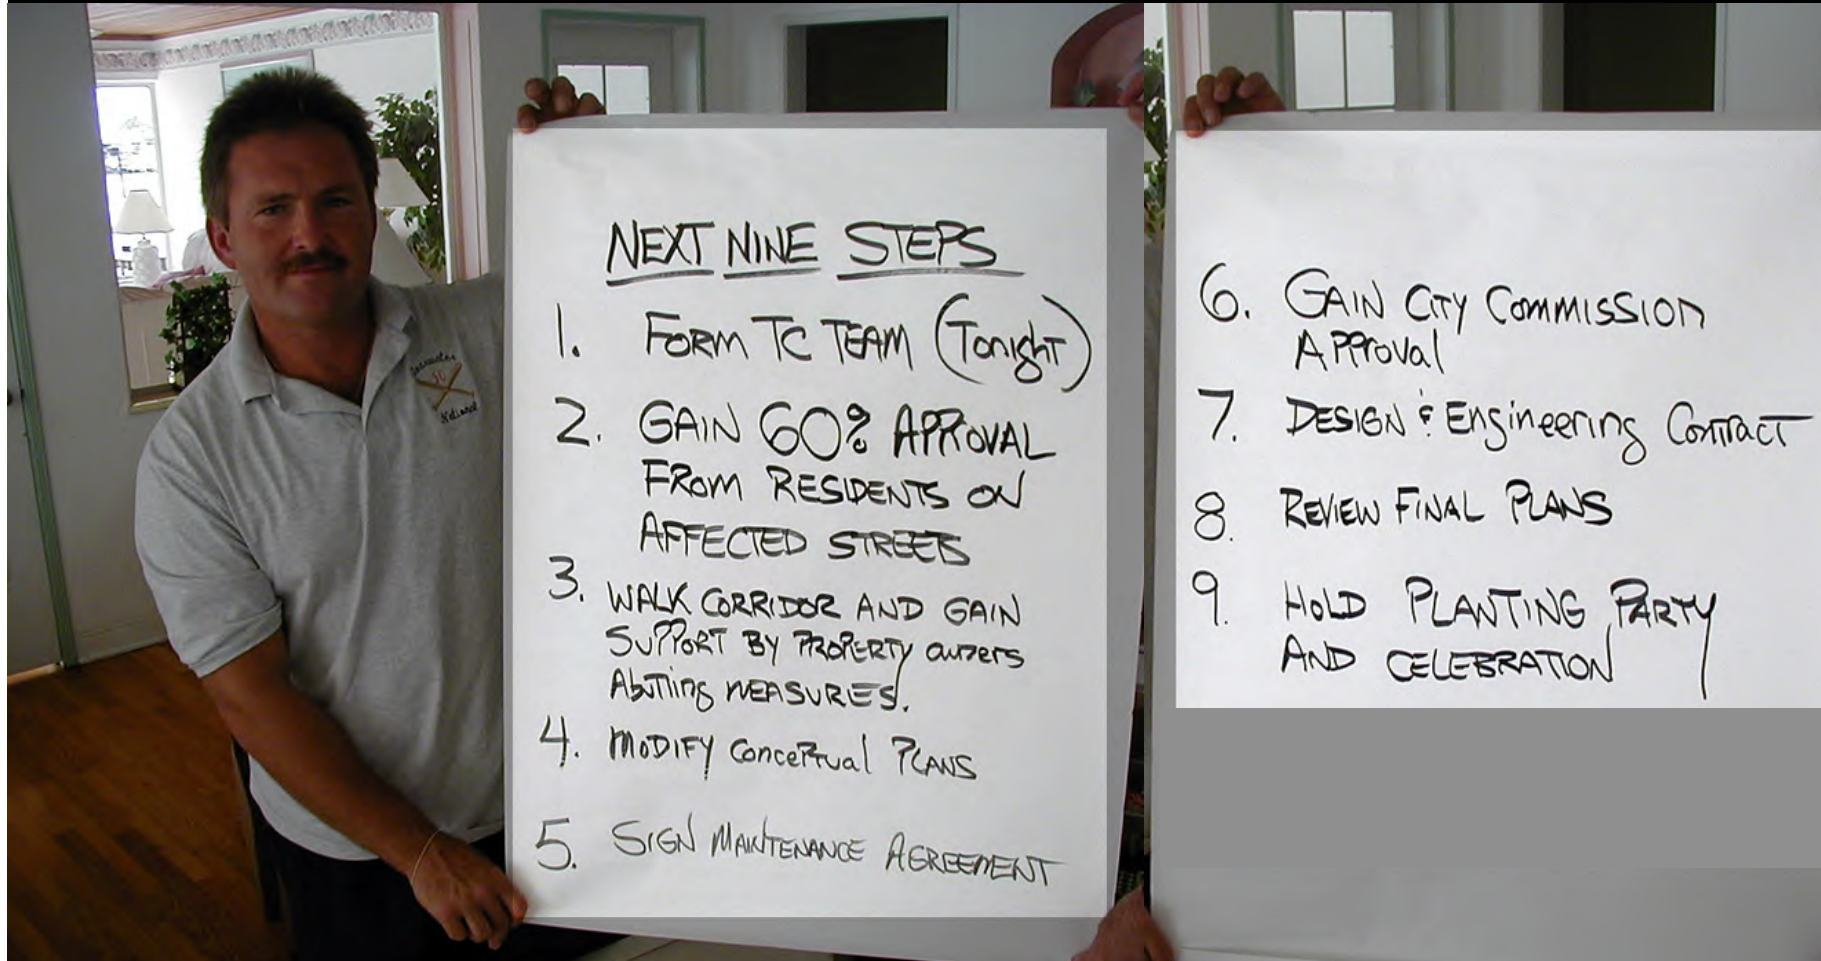 NEXT NINE STEPS
1. FORM TC TEAM (Tonight)
2. GAIN 60% APROVAL
FROM RESIDENTS ON
AFFECTED STREETS
3. WALK CORRIDOR AND GAIN
SUPPORT BY PROPERTY owners
Abutting MEASURES.
4. MODIFY Conceptual PLANS
5. SIGN MAINTENANCE AGREEMENT
6. GAIN CITY COMMISSION
APProval
7. DESIGN & Engineering Contract
8. REVIEW FINAL PLANS
9. HOLD PLANTING PARTY
AND CELEBRATION
Clearwater
National